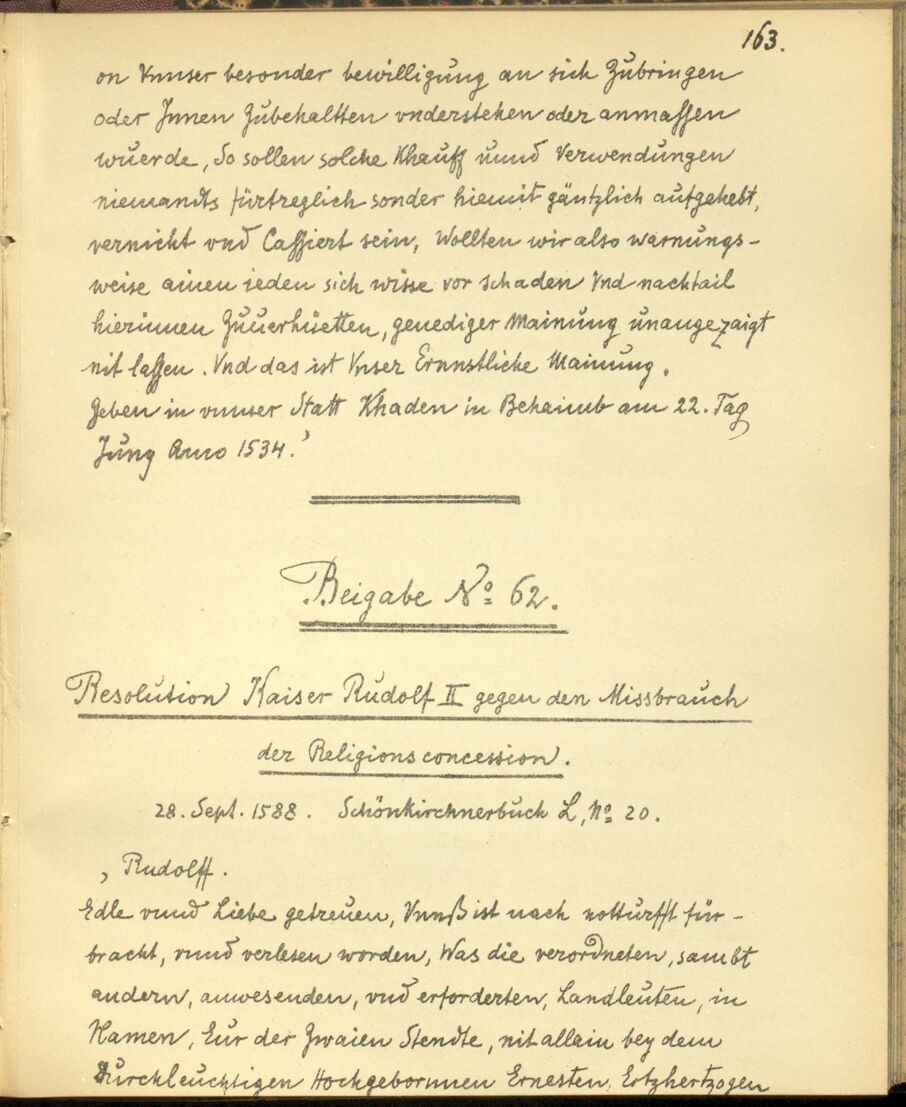 163.
on Vnnser besonder bewilligung an sich Zubringen
oder Innen Zubehaltten vnderstehen oder anmassen
wuerde, So sollen solche Khauff unnd Verwendungen
niemandts fürtreglich sonder hiemit gäntzlich aufgehebt,
vernicht vnd Cassiert sein, Wollten wir also warnungs-
weise ainen ieden sich wisse vor schaden Vnd nachtail
hierinnen Zuuerhüetten, genediger Mainung unangezaigt
nit lassen. Vnd das ist Vnser Ernnstliche Mainung.
Geben in vnnser Statt Khaden in Behaimb am 22. Tag
Juny Anno 1534.'
Beigabe No 62.
Resolution Kaiser Rudolf II gegen den Missbrauch
der Religionsconcession.
28. Sept. 1588. Schönkirchnerbuch L, No 20.
, Rudolff.
Edle vnnd Liebe getreuen, Vnnß ist nach notturfft für-
bracht, vnnd verlesen worden, Was die verordneten, sambt
andern, anwesenden, vnd erforderten, Landleuten, in
Namen, Eur der Zwaien Stendte, nit allain bey dem
Durchleuchtigen Hochgebornnen Ernesten, Ertzhertzogen